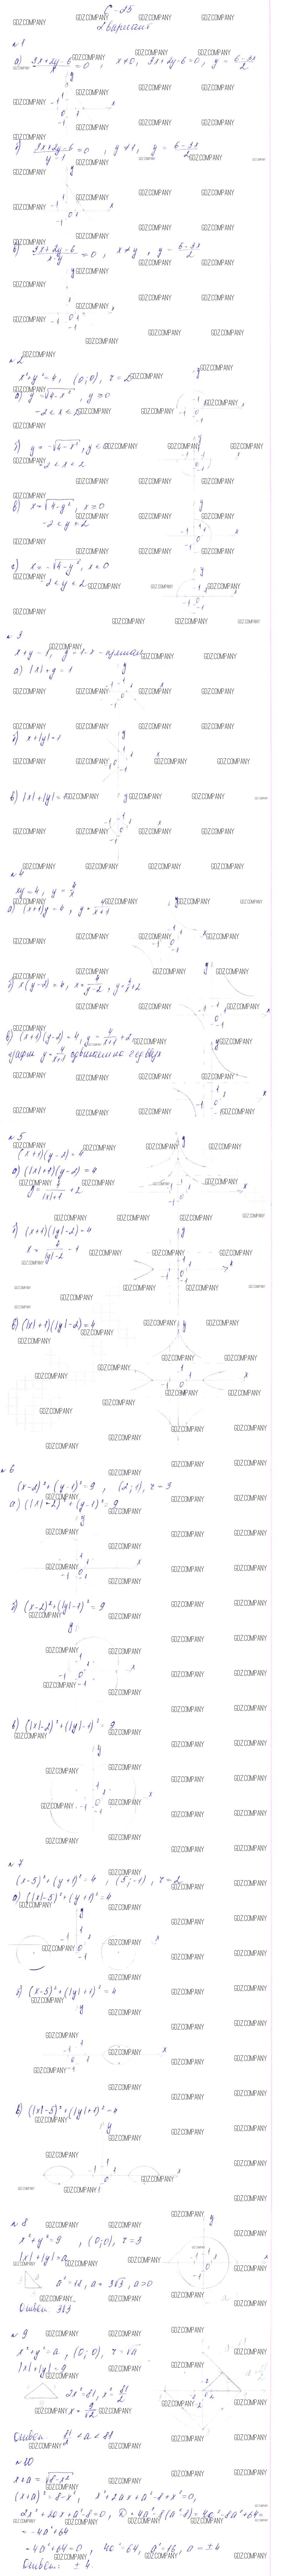 С-25
2 вариант
№1
а) (3x+2y-6)/x = 0, x≠0, 3x+2y-6=0, y = (6-3x)/2
б) (3x+2y-6)/(y-1) = 0, y≠1, y = (6-3x)/2
в) (3x+2y-6)/(x-y) = 0, x≠y, y = (6-3x)/2
№2
x²+y²=4, (0;0), r=2
а) y=√4-x², y≥0
-2<x<2
б) y=-√4-x², y<0
-2<x<2
в) x=√4-y², x≥0
-2<y<2
г) x=-√4-y², x<0
-2<y<2
№3
x+y=1, y=1-x - прямая
а) |x|+y=1
б) x+|y|=1
в) |x|+|y|=1
№4
xy=4, y=4/x
а) (x+1)y=4, y=4/(x+1)
б) x(y-2)=4, x=4/(y-2), y=4/x+2
в) (x+1)(y-2)=4, y=4/(x+1)+2
график y=4/(x+1) сдвинем на 2 вверх
№5
(x+1)(y-2)=4
а) (|x|+1)(y-2)=4
y=4/(|x|+1)+2
б) (x+1)(|y|-2)=4
x=4/(|y|-2)-1
в) (|x|+1)(|y|-2)=4
№6
(x-2)²+(y-1)²=9, (2;1), r=3
а) (|x|-2)²+(y-1)²=9
б) (x-2)²+(|y|-1)²=9
в) (|x|-2)²+(|y|-1)²=9
№7
(x-5)²+(y+1)²=4, (5;-1), r=2
а) (|x|-5)²+(y+1)²=4
б) (x-5)²+(|y|+1)²=4
в) (|x|-5)²+(|y|+1)²=4
№8
x²+y²=9, (0;0), r=3
|x|+|y|=a
a²=18, a=3√2, a>0
Ответ: 3√2
№9
x²+y²=a, (0;0), r=√a
|x|+|y|=9
2x²=81, x²=81/2
x=9/√2
Ответ: 81/2<a<81
№10
x+a=√8-x²
(x+a)²=8-x², x²+2ax+a²-8+x²=0,
2x²+2ax+a²-8=0, D=4a²-8(a²-8)=4a²-8a²+64=
=-4a²+64
-4a²+64=0, 4a²=64, a²=16, a=±4
Ответ: ±4